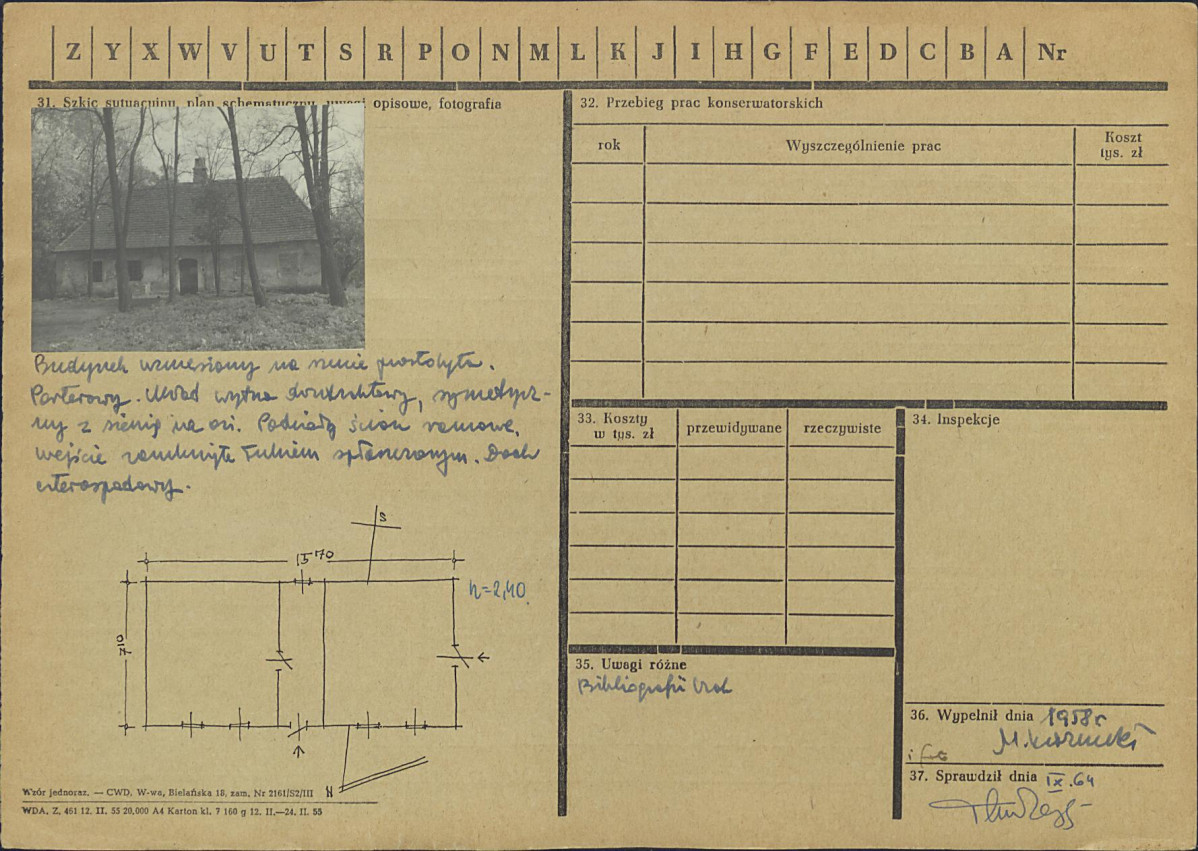 Z Y X W V U T S R P O N M L K J I H G F E D C B A Nr
31. Szkic sytuacyjny, plan schematyczny, uwagi opisowe, fotografia
Budynek wzniesiony na rzucie prostokąta.
Parterowy. Układ wnętrza dwutraktowy, symetrycz-
ny z sienią na osi. Podziały ścian ramowe,
wejście zamknięte łukiem spłaszczonym. Dach
czterospadowy.
S
15 70
h=2,40
7 10
N
Wzór jednoraz. — CWD, W-wa, Bielańska 18, zam. Nr 2161/S2/III
WDA. Z. 461 12. II. 55 20.000 A4 Karton kl. 7 160 g 12. II.—24. II. 55
32. Przebieg prac konserwatorskich
rok
Wyszczególnienie prac
Koszt
tys. zł
33. Koszty
w tys. zł
przewidywane
rzeczywiste
34. Inspekcje
35. Uwagi różne
Bibliografii brak
36. Wypełnił dnia 1958 r
i fot
M. Kornecki
37. Sprawdził dnia IX. 64